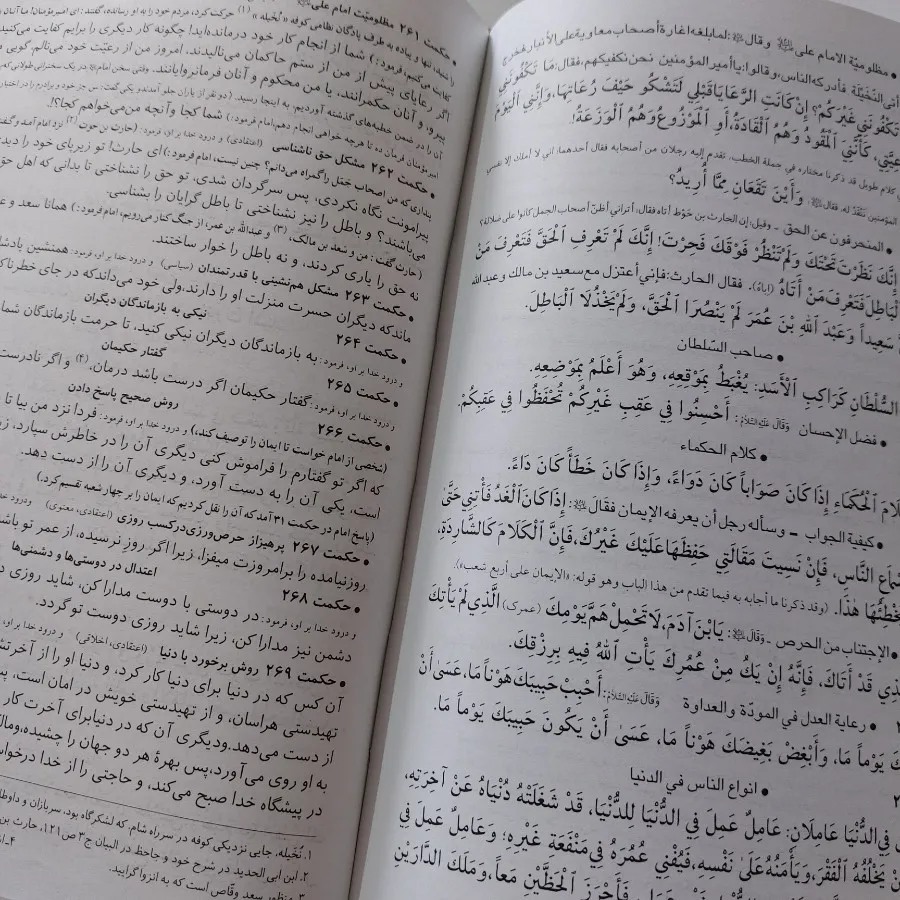 • مظلوميّة الإمام علي وقال: لما بلغه اغارة أصحاب معاوية على الأنبار فخرج
أتى النُّخَيْلَة فأدركه الناس، وقالوا: يا أمير المؤمنين نحن نكفيكهم فقال: مَا تَكْفُونَنِي
تَكْفُونَنِي غَيْرَكُمْ؟ إِنْ كَانَتِ الرَّعَايَا قَبْلِي لَتَشْكُو حَيْفَ رُعَاتِهَا، وَإِنَّنِي الْيَوْمَ
عِيَّتِي، كَأَنَّنِي الْمَقُودُ وَهُمُ الْقَادَةُ، أَوِ الْمَوْزُوعُ وَهُمُ الْوَزَعَةُ!
كلام طويل قد ذكرنا مختاره في جملة الخطب، تقدم إليه رجلان من أصحابه فقال أحدهما: اني لا أملك إلا نفسي
المؤمنين ننقد له. فقال: وَأَيْنَ تَقَعَانِ مِمَّا أُرِيدُ؟
• المنحرفون عن الحق - وقيل: إن الحارث بن حَوْط أتاه فقال: أتراني أظنّ أصحاب الجمل كانوا على ضلالة؟
إِنَّكَ نَظَرْتَ تَحْتَكَ وَلَمْ تَنْظُرْ فَوْقَكَ فَحِرْتَ! إِنَّكَ لَمْ تَعْرِفِ الْحَقَّ فَتَعْرِفَ مَنْ
الْبَاطِلَ فَتَعْرِفَ مَنْ أَتَاهُ. فقال الحارث: فإني أعتزل مع سعيد بن مالك وعبدالله
سَعِيداً وَعَبْدَ اللهِ بْنَ عُمَرَ لَمْ يَنْصُرَا الْحَقَّ، وَلَمْ يَخْذُلَا الْبَاطِلَ.
• صاحب السّلطان
السُّلْطَانِ كَرَاكِبِ الْأَسَدِ: يُغْبَطُ بِمَوْقِعِهِ، وَهُوَ أَعْلَمُ بِمَوْضِعِهِ.
• فضل الإحسان وَقَالَ عَلَيْهِ السَّلَامُ: أَحْسِنُوا فِي عَقِبِ غَيْرِكُمْ تُحْفَظُوا فِي عَقِبِكُمْ.
• كلام الحكماء
كَلَامَ الْحُكَمَاءِ إِذَا كَانَ صَوَاباً كَانَ دَوَاءً، وَإِذَا كَانَ خَطَأً كَانَ دَاءً.
• كيفية الجواب - وسأله رجل أن يعرفه الإيمان فقال: إِذَا كَانَ الْغَدُ فَأْتِنِي حَتَّى
أَسْمَاعِ النَّاسِ، فَإِنْ نَسِيتَ مَقَالَتِي حَفِظَهَا عَلَيْكَ غَيْرُكَ، فَإِنَّ الْكَلَامَ كَالشَّارِدَةِ،
يُخْطِئُهَا هٰذَا. (وقد ذكرنا ما أجابه به فيما تقدم من هذا الباب وهو قوله: «الإيمان على أربع شعب»).
• الإجتناب من الحرص - وَقَالَ: يَا بْنَ آدَمَ، لَا تَحْمِلْ هَمَّ يَوْمِكَ (عمرك) الَّذِي لَمْ يَأْتِكَ
الَّذِي قَدْ أَتَاكَ، فَإِنَّهُ إِنْ يَكُ مِنْ عُمُرِكَ يَأْتِ اللهُ فِيهِ بِرِزْقِكَ.
• رعاية العدل في المودّة والعداوة وَقَالَ عَلَيْهِ السَّلَامُ: أَحْبِبْ حَبِيبَكَ هَوْناً مَا، عَسَىٰ أَنْ
يَوْماً مَا، وَأَبْغِضْ بَغِيضَكَ هَوْناً مَا، عَسَىٰ أَنْ يَكُونَ حَبِيبَكَ يَوْماً مَا.
• انواع الناس في الدنيا
فِي الدُّنْيَا عَامِلَانِ: عَامِلٌ عَمِلَ فِي الدُّنْيَا لِلدُّنْيَا، قَدْ شَغَلَتْهُ دُنْيَاهُ عَنْ آخِرَتِهِ،
يَخْلُفُهُ الْفَقْرَ، وَيَأْمَنُهُ عَلَىٰ نَفْسِهِ، فَيُفْنِي عُمُرَهُ فِي مَنْفَعَةِ غَيْرِهِ؛ وَعَامِلٌ عَمِلَ فِي
فَأَحْرَزَ الْحَظَّيْنِ مَعاً، وَمَلَكَ الدَّارَيْنِ
• حکمت ۲۶۱ مظلومیّت امام علی
را شنید، تنها و پیاده به طرف پادگان نظامی کوفه «نُخیله» (۱) حرکت کرد، مردم خود را به او رسانده، گفتند: ای امیرمؤمنان! ما آنان را
کفایت می‌کنیم؛ فرمود:) شما از انجام کار خود درمانده‌اید! چگونه کار دیگری را برایم کفایت می‌کنید؟
اگر رعایای پیش از من از ستم حاکمان می‌نالیدند، امروز من از رعیّت خود می‌نالم، گویی من
پیرو، و آنان حکمرانند، یا من محکوم و آنان فرمانروایانند. وقتی سخن امام در یک سخنرانی طولانی که
آن را در ضمن خطبه‌های گذشته آوردیم، به اینجا رسید. (دو نفر از یاران جلو آمدند و یکی گفت: من جز خود و برادرم را در اختیار
امیرمؤمنان فرمان ده تا هرچه خواهی انجام دهم، امام فرمود:) شما کجا و آنچه من می‌خواهم کجا؟!
• حکمت ۲۶۲ مشکل حق ناشناسی (اعتقادی) و درود خدا بر او، فرمود: (حارث بن حوت (۲) نزد امام آمد و گفت
پنداری که من اصحاب جمل را گمراه می‌دانم؟ چنین نیست، امام فرمود:) ای حارث! تو زیرپای خود را دیدی
پیرامونت نگاه نکردی، پس سرگردان شدی، تو حق را نشناختی تا بدانی که اهل حق
می‌باشند؟ و باطل را نیز نشناختی تا باطل گرایان را بشناسی.
(حارث گفت: من و سعد بن مالک، (۳) و عبدالله بن عمر، از جنگ کنار می‌رویم، امام فرمود:) همانا سعد و
نه حق را یاری کردند، و نه باطل را خوار ساختند.
• حکمت ۲۶۳ مشکل هم‌نشینی با قدرتمندان (سیاسی) و درود خدا بر او، فرمود: همنشین پادشاه
ماند که دیگران حسرت منزلت او را دارند، ولی خود می‌داند که در جای خطرناک
• حکمت ۲۶۴ نیکی به بازماندگان دیگران
و درود خدا بر او، فرمود: به بازماندگان دیگران نیکی کنید، تا حرمت بازماندگان شما
• حکمت ۲۶۵ گفتار حکیمان
و درود خدا بر او، فرمود: گفتار حکیمان اگر درست باشد درمان، (۴) و اگر نادرست
• حکمت ۲۶۶ روش صحیح پاسخ دادن
(شخصی از امام خواست تا ایمان را توصیف کند،) و درود خدا بر او، فرمود: فردا نزد من بیا تا
که اگر تو گفتارم را فراموش کنی دیگری آن را در خاطرش سپارد، زیرا
است، یکی آن را به دست آورد، و دیگری آن را از دست دهد.
(پاسخ امام در حکمت ۳۱ آمد که آن را نقل کردیم که ایمان را بر چهار شعبه تقسیم کرد.)
• حکمت ۲۶۷ پرهیز از حرص‌ورزی در کسب روزی (اعتقادی، معنوی) و درود خدا بر او،
روز نیامده را بر امروزت میفزا، زیرا اگر روز نرسیده، از عمر تو باشد
• حکمت ۲۶۸ اعتدال در دوستی‌ها و دشمنی‌ها
و درود خدا بر او، فرمود: در دوستی با دوست مدارا کن، شاید روزی
دشمن نیز مدارا کن، زیرا شاید روزی دوست تو گردد.
• حکمت ۲۶۹ روش برخورد با دنیا (اعتقادی، اخلاقی) و درود خدا بر او،
آن کس که در دنیا برای دنیا کار کرد، و دنیا او را از آخرتش
تهیدستی هراسان، و از تهیدستی خویش در امان است، پس
از دست می‌دهد. و دیگری آن که در دنیا برای آخرت کار
به او روی می‌آورد، پس بهرهٔ هر دو جهان را چشیده، و مالک
در پیشگاه خدا صبح می‌کند، و حاجتی را از خدا درخواست
۱. نُخَیله. جایی نزدیکی کوفه در سر راه شام، که لشکرگاه بود، سربازان و داوطلبان
۲. ابن ابی الحدید در شرح خود و جاحظ در البیان ج۳ ص۱۲۱، حارث بن
۳. منظور سعد وقّاص است که به انزوا گرایید.